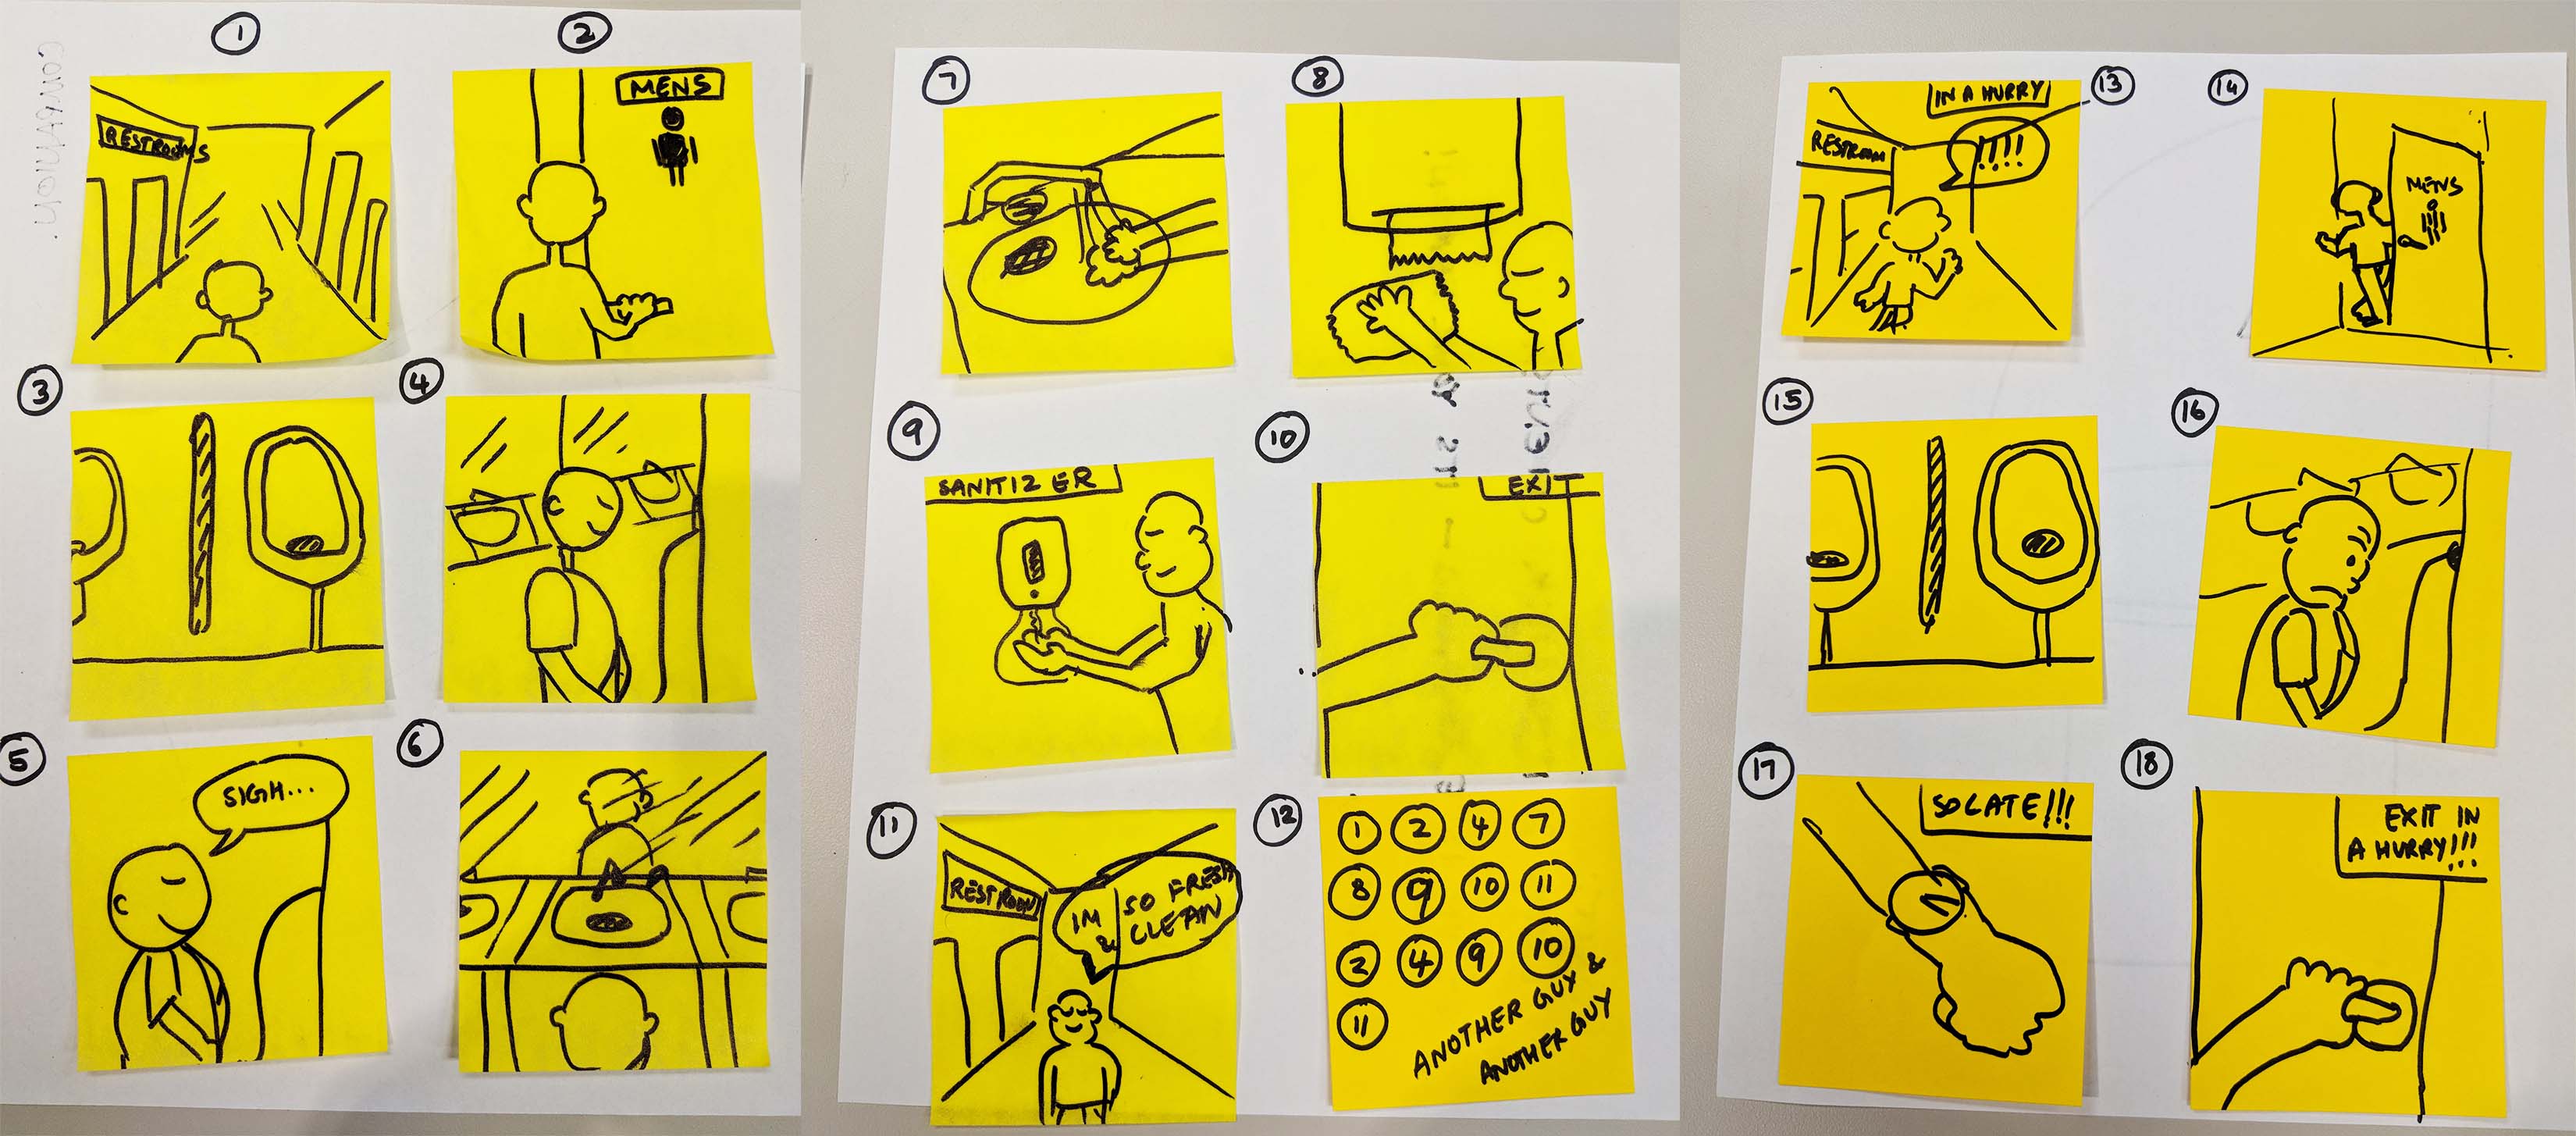 1
2
RESTROOMS
MENS
3
4
5
SIGH...
6
7
8
9
SANITIZER
10
EXIT
11
RESTROOM
IM SO FRESH
& CLEAN
12
1 2 4 7
8 9 10 11
2 4 9 10
11
ANOTHER GUY &
ANOTHER GUY
13
IN A HURRY
RESTROOM
!!!!
14
MENS
15
16
17
SO LATE!!!
18
EXIT IN
A HURRY!!!